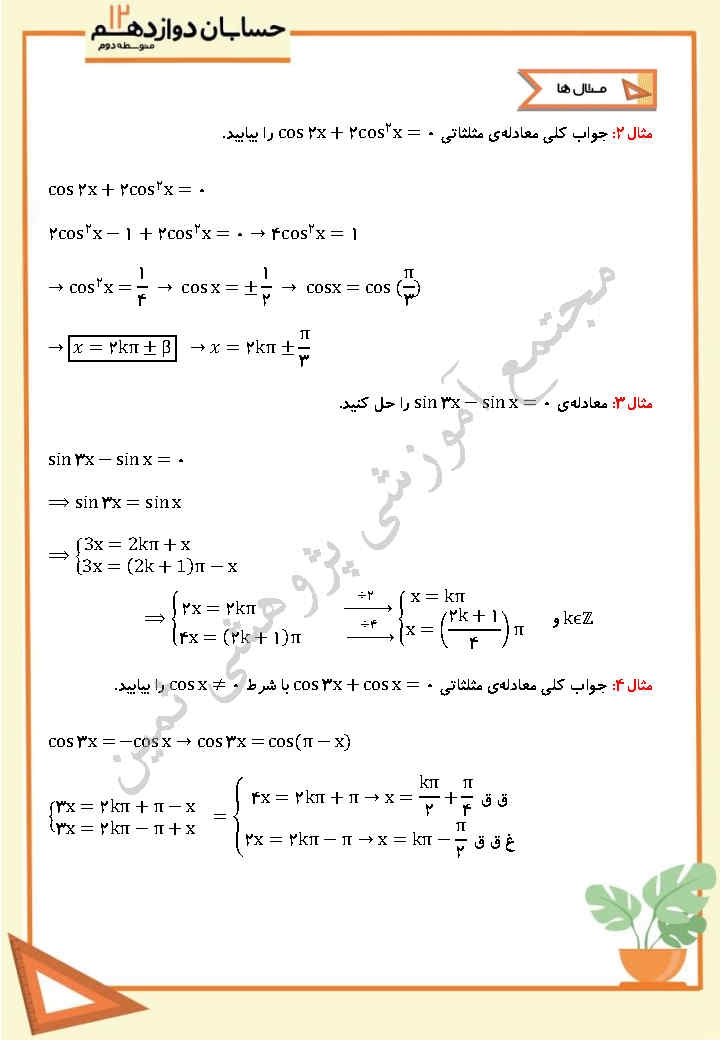 حسابان دوازدهم ۱۲
متوسطه دوم
مثال ها
مثال ۲: جواب کلی معادله‌ی مثلثاتی cos ۲x + ۲cos²x = ۰ را بیابید.
cos ۲x + ۲cos²x = ۰
۲cos²x − ۱ + ۲cos²x = ۰ → ۴cos²x = ۱
→ cos²x = ۱/۴ → cos x = ± ۱/۲ → cosx = cos (π/۳)
→ x = ۲kπ ± β → x = ۲kπ ± π/۳
مثال ۳: معادله‌ی sin ۳x − sin x = ۰ را حل کنید.
sin ۳x − sin x = ۰
⟹ sin ۳x = sin x
⟹ {3x = 2kπ + x
3x = (2k + 1)π − x
⟹ {۲x = ۲kπ ÷۲→ {x = kπ
۴x = (۲k + ۱)π ÷۴→ x = (۲k + ۱/۴) π و kϵℤ
مثال ۴: جواب کلی معادله‌ی مثلثاتی cos ۳x + cos x = ۰ با شرط cos x ≠ ۰ را بیابید.
cos ۳x = −cos x → cos ۳x = cos(π − x)
{۳x = ۲kπ + π − x = {۴x = ۲kπ + π → x = kπ/۲ + π/۴ ق ق
۳x = ۲kπ − π + x ۲x = ۲kπ − π → x = kπ − π/۲ غ ق ق
مجتمع آموزشی پژوهشی ثمین